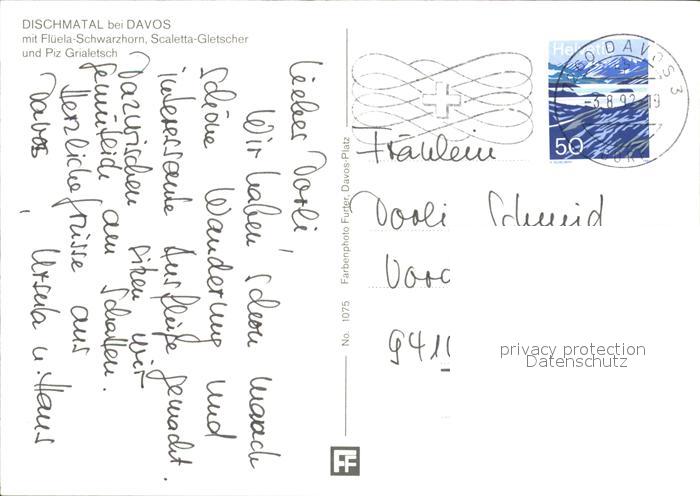 DISCHMATAL bei DAVOS
mit Flüela-Schwarzhorn, Scaletta-Gletscher
und Piz Grialetsch
Liebes Dorli,
Wir haben schon manch
schöne Wanderung und
interessante Ausflüge gemacht.
Dazwischen sitzen wir
gemütlich am Schatten.
Herzliche Grüsse aus
Davos, Ursula u. Hans
No. 1075 Farbenphoto Furter, Davos-Platz
FF
Helvetia
50
DAVOS 3
-3.8.92-19
Fräulein
Dorli Schmid
941
privacy protection
Datenschutz